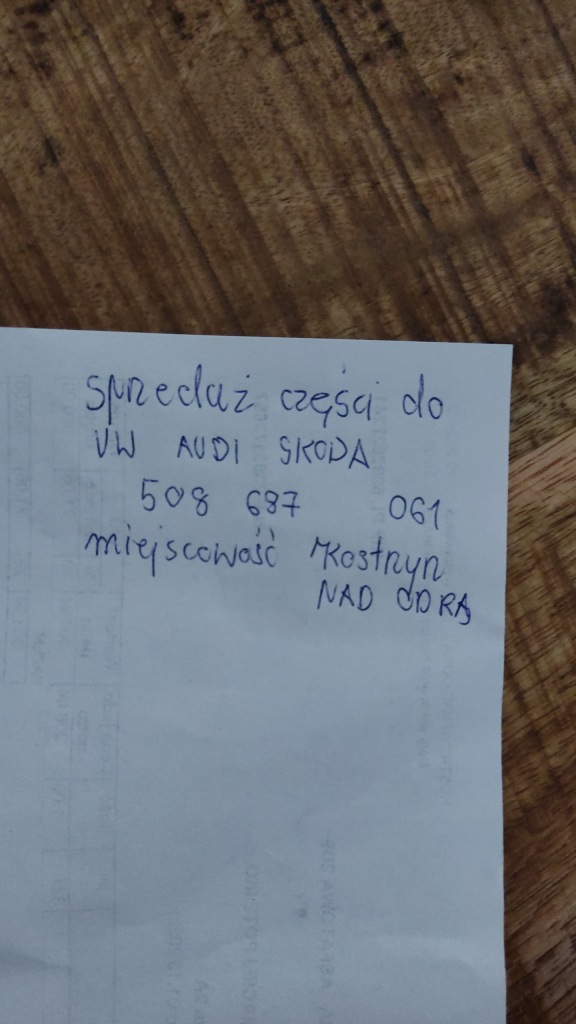 sprzedaż części do
VW AUDI SKODA
508 687 061
miejscowość Kostrzyn
NAD ODRĄ